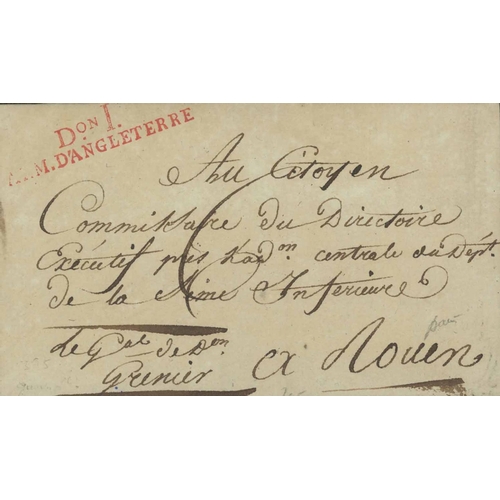 Don I.
ARM. D'ANGLETERRE
Au Citoyen
Commissaire du Directoire
Exécutif près l'adon centrale du Dépt.
de la Seine Inferieure
Le Gal de Don
Grenier
a Rouen